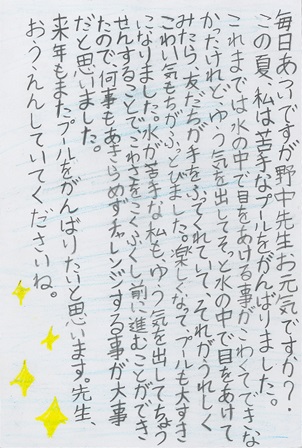 毎日あついですが野中先生お元気ですか？
この夏、私は苦手なプールをがんばりました。
これまでは水の中で目をあける事がこわくてできな
かったけれど、ゆう気を出してそっと水の中で目をあけて
みたら、友だちが手をふってくれていて、それがうれしく
こわい気もちがふっとびました。楽しくなって、プールも大すき
になりました。水が苦手な私も、ゆう気を出してちょう
せんすることでこわさをこくふくし前に進むことができ
たので何事もあきらめずチャレンジする事が大事
だと思いました。
来年もまたプールをがんばりたいと思います。先生、
おうえんしていてくださいね。